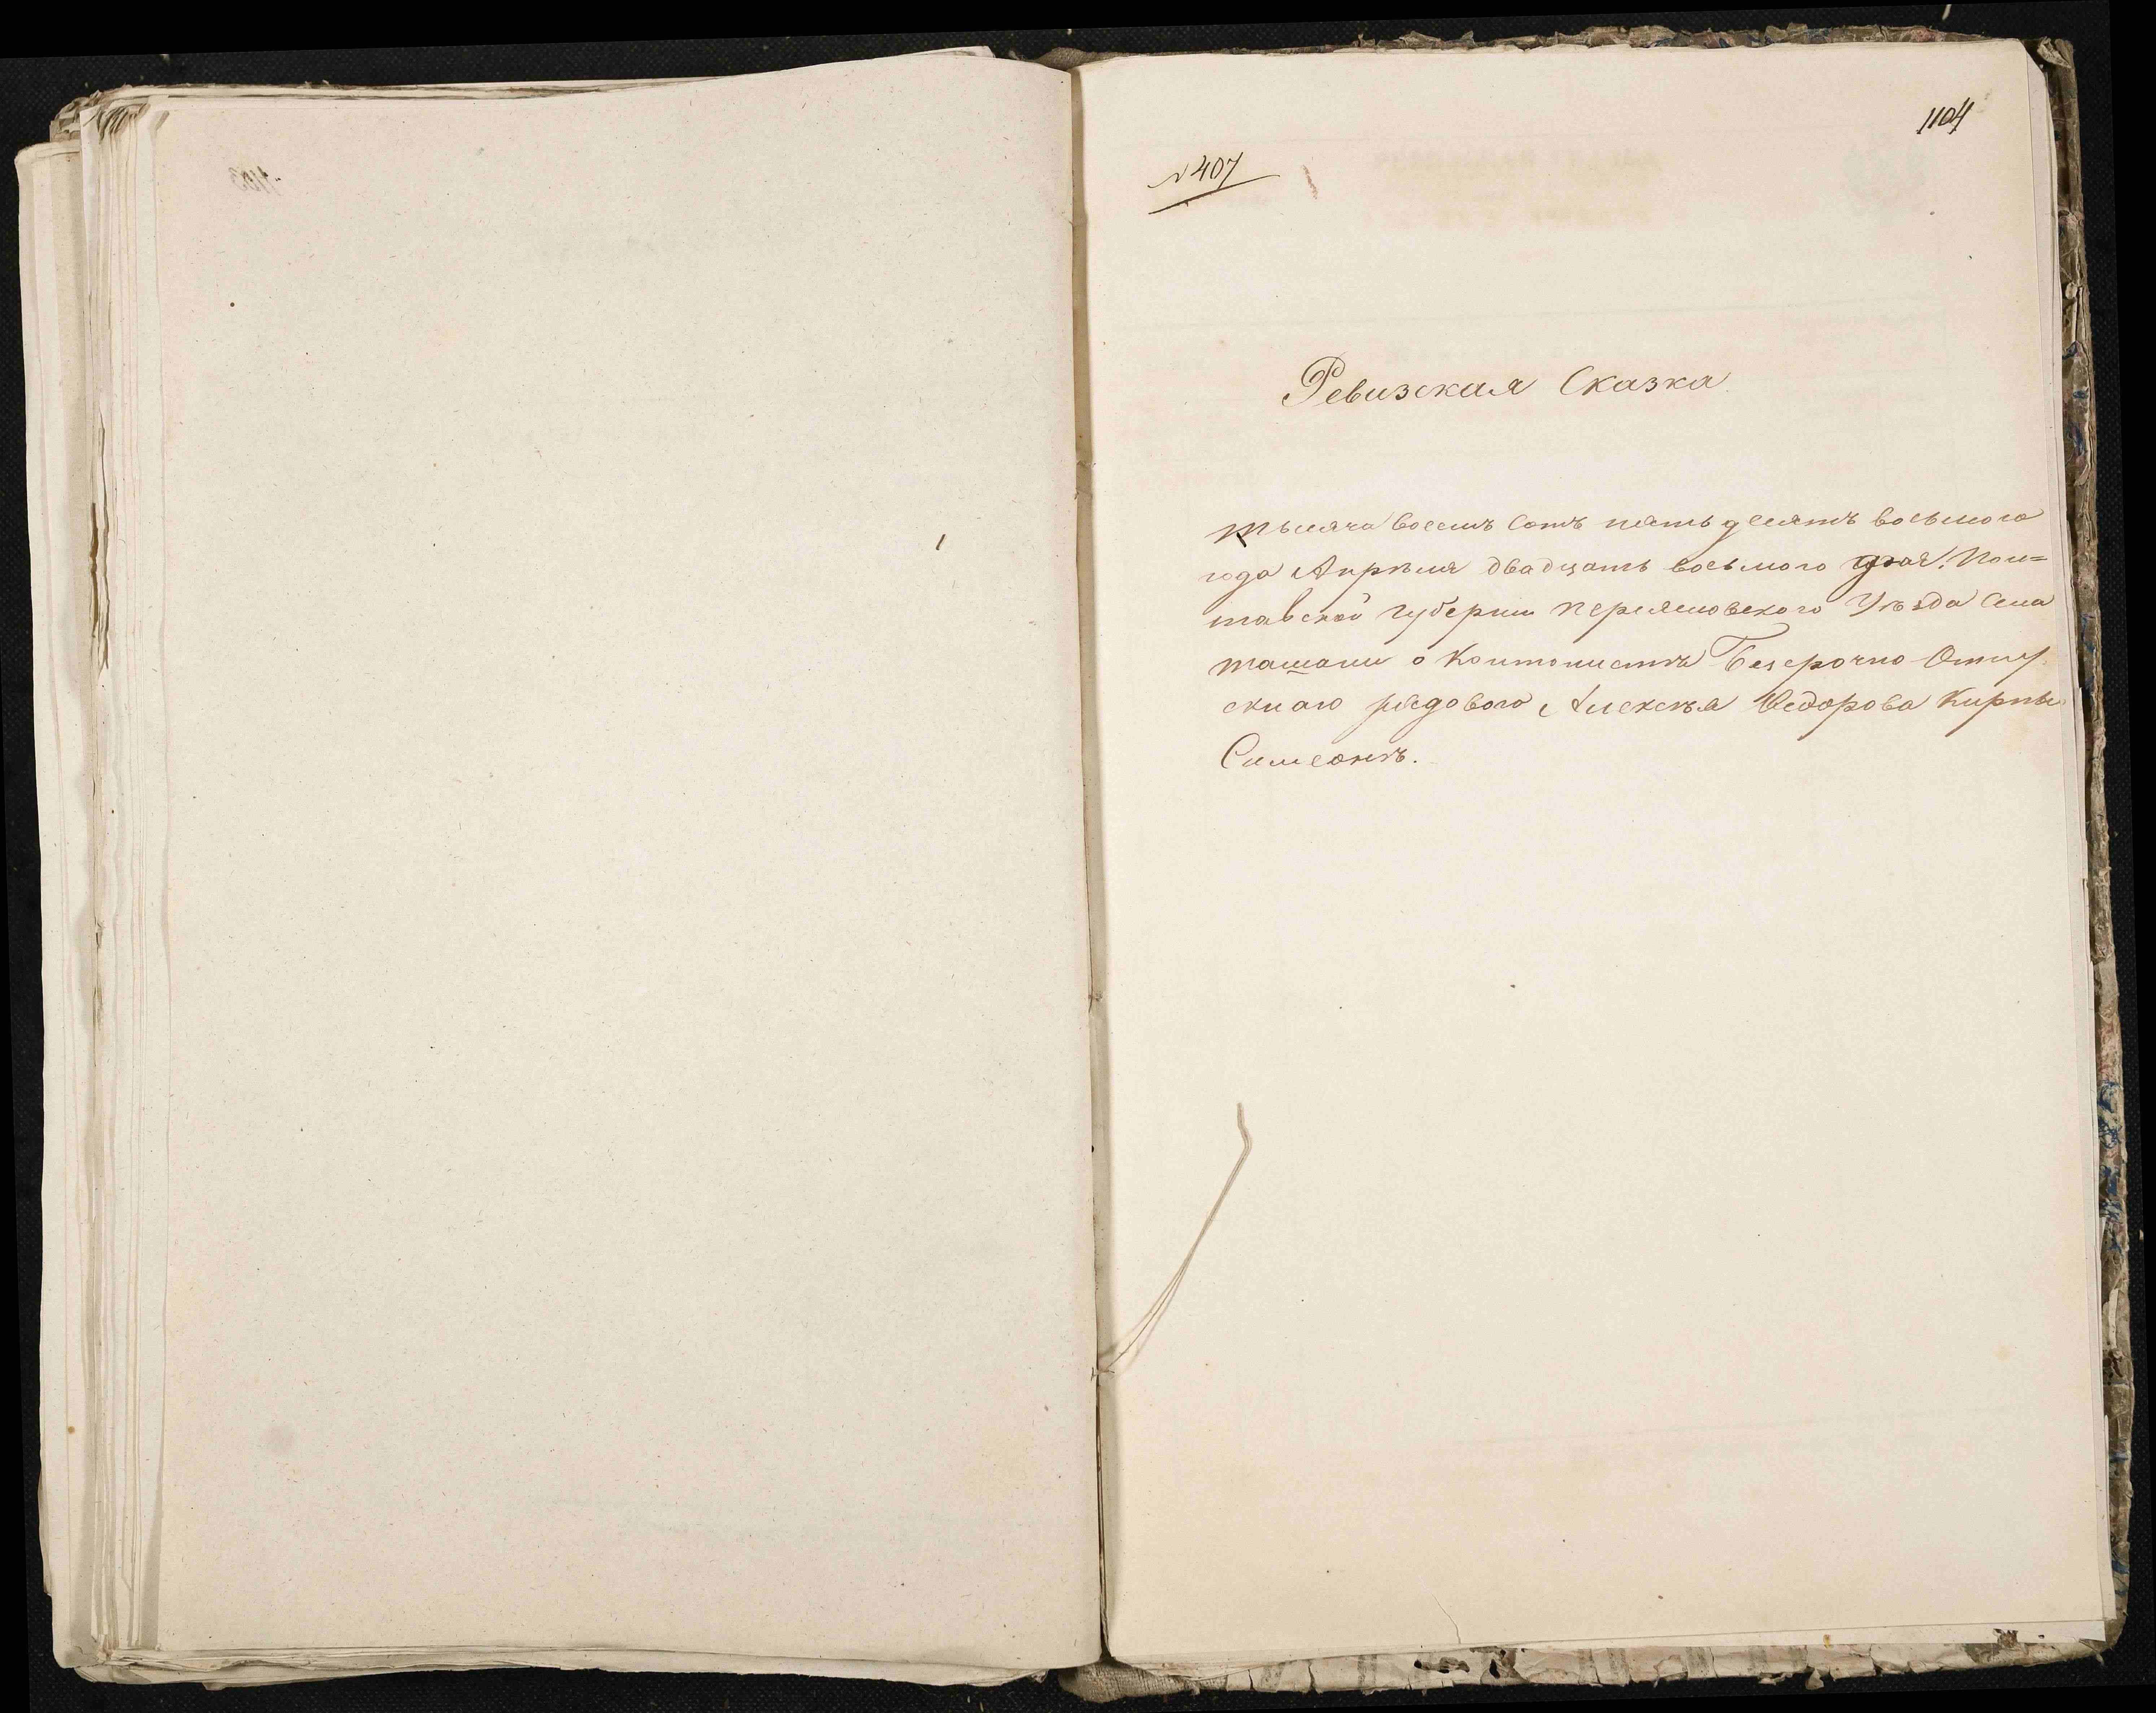 1104
№ 407
Ревизская Сказка
тысяча восемъ сотъ пять десятъ восьмого
года Апрѣля двадцать восьмого дня. Пол=
тавской губерніи Переяславского Уѣзда Села
Ташани о Кантонистѣ Безсрочно-Отпу
скнаго рядового Алексѣя Федорова Кирпы
Симеонѣ.